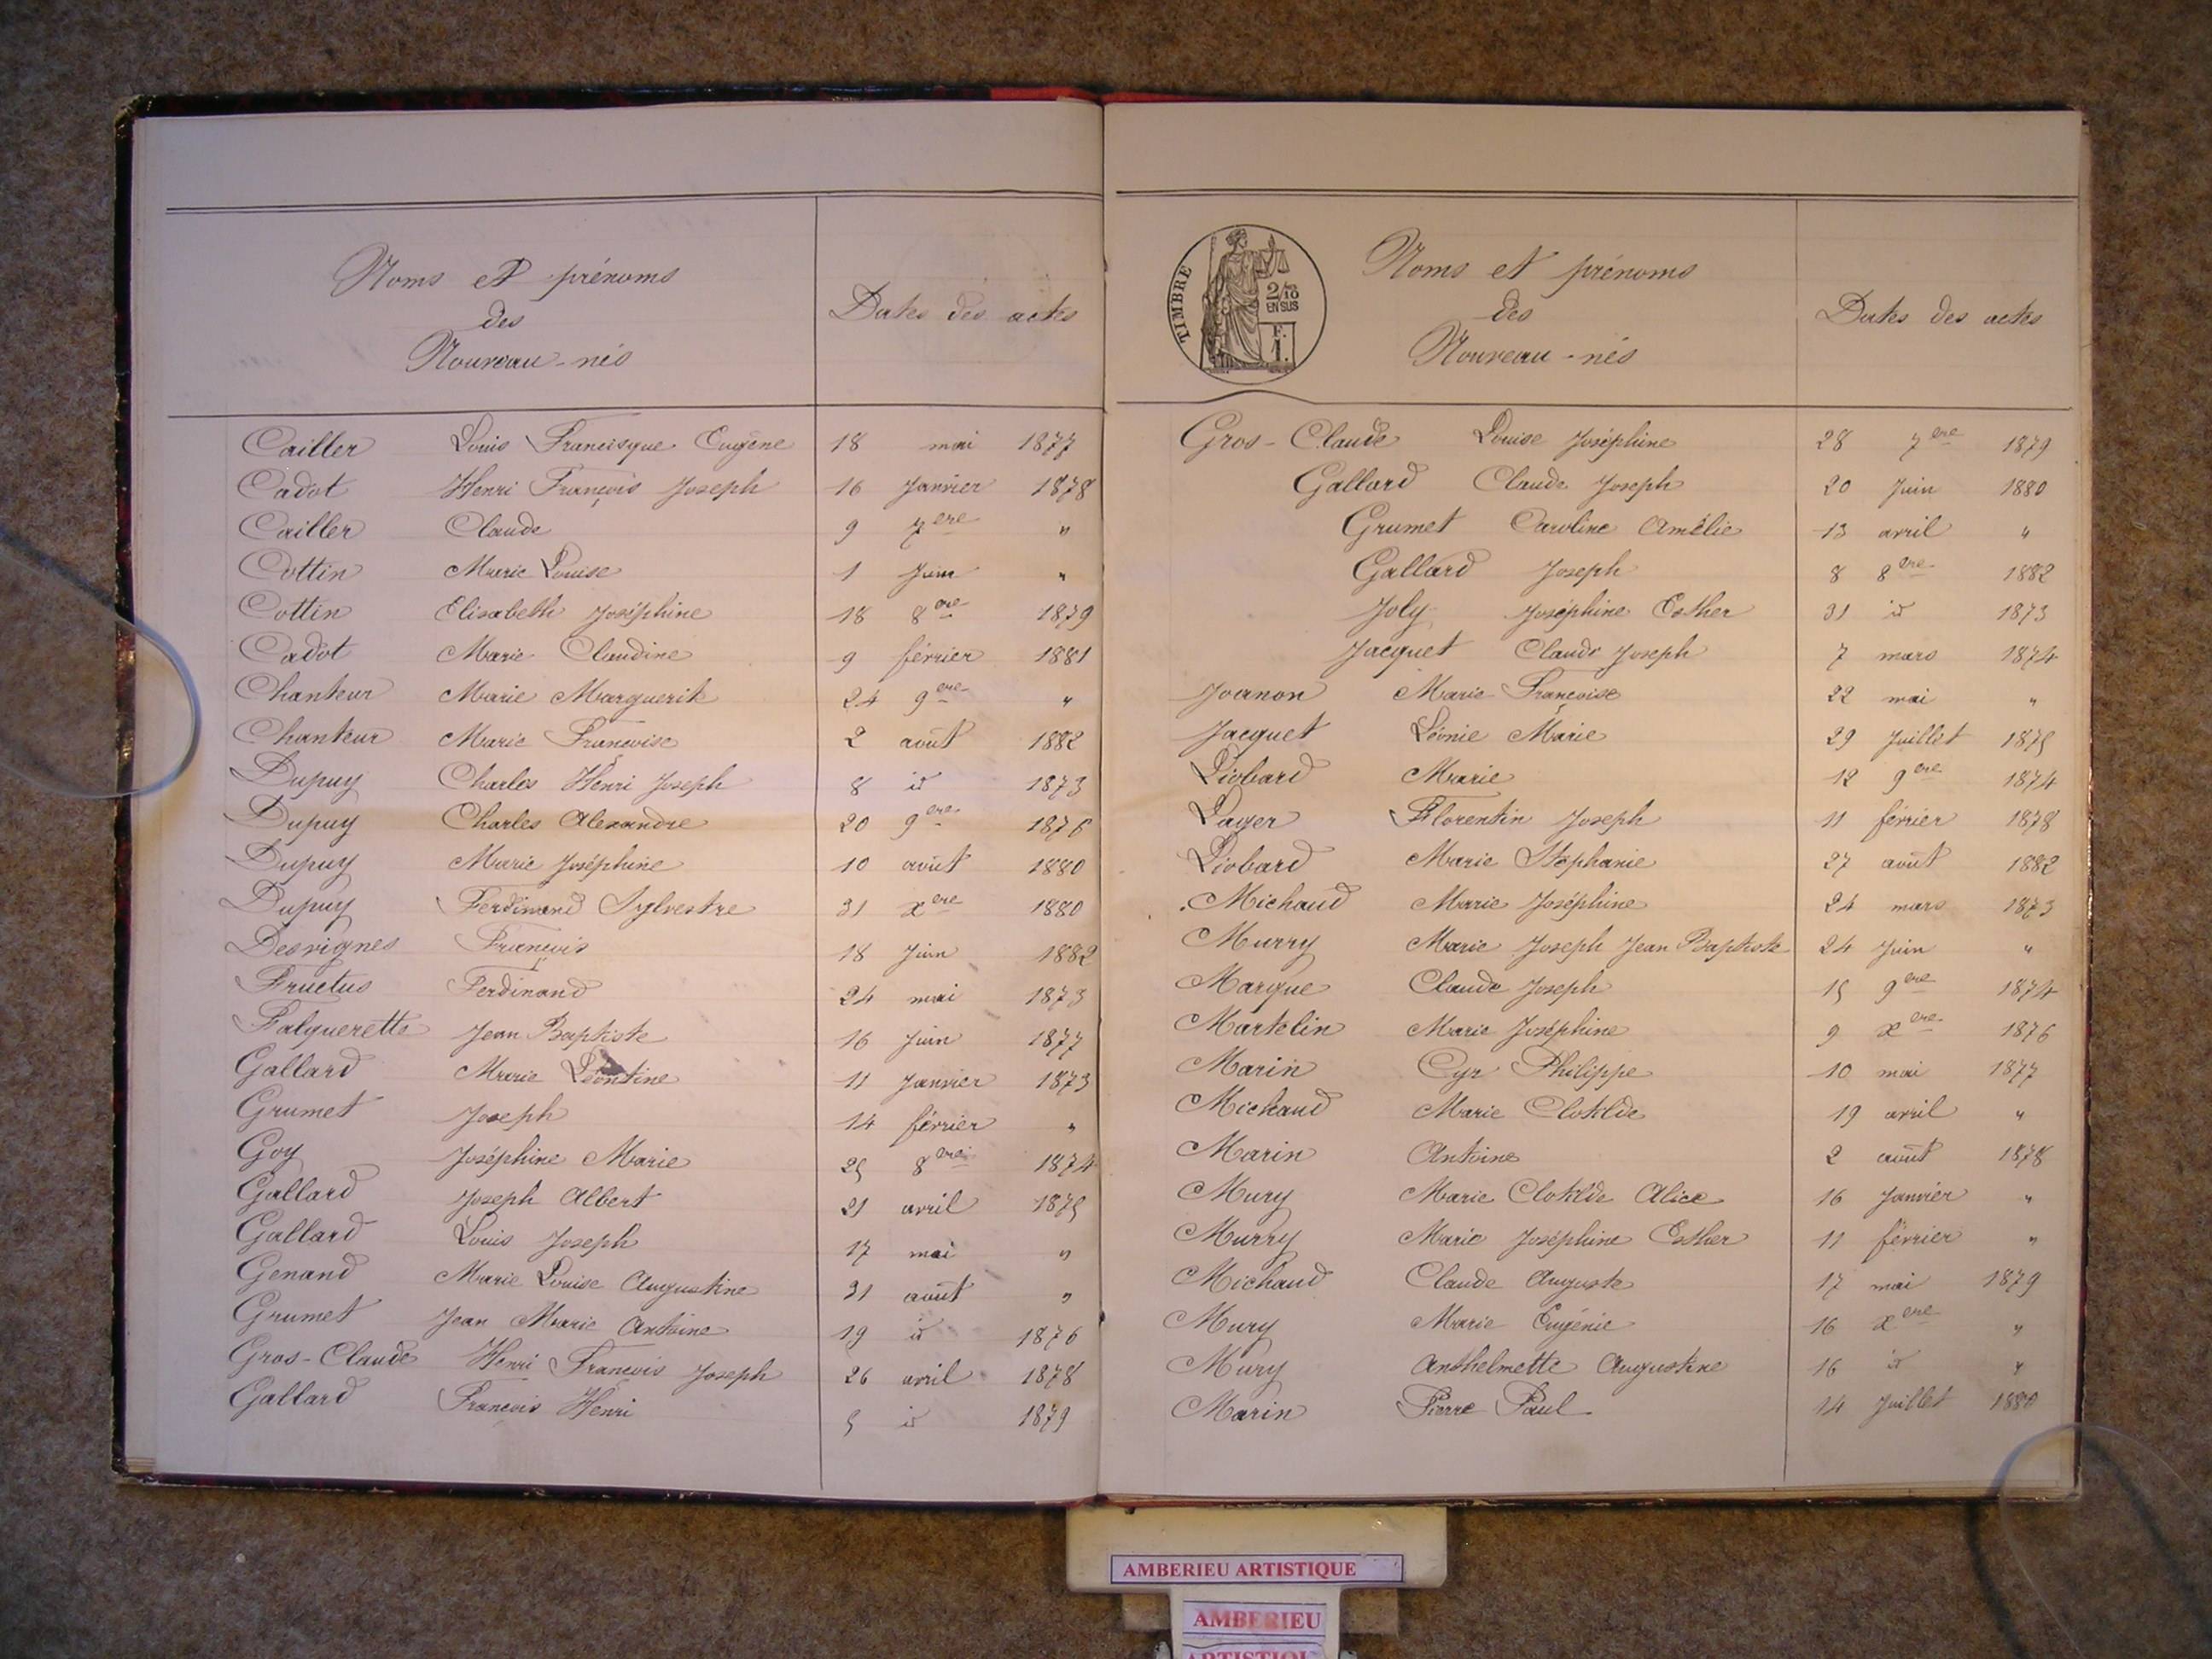 Noms et prénoms
des
Nouveau-nés
Dates des actes
Cailler Louis Francisque Eugène 18 mai 1877
Cadot Henri François Joseph 16 Janvier 1878
Cailler Claude 9 7ere "
Cottin Marie Louise 1 Juin "
Cottin Elisabeth Joséphine 18 8ere 1879
Cadot Marie Claudine 9 février 1881
Chanteur Marie Marguerite 24 9ere "
Chanteur Marie Françoise 2 août 1882
Dupuy Charles Henri Joseph 8 id 1873
Dupuy Charles Alexandre 20 9ere 1876
Dupuy Marie Joséphine 10 août 1880
Dupuy Ferdinand Sylvestre 31 xere 1880
Desvignes François 18 Juin 1882
Fructus Ferdinand 24 mai 1873
Falquerette Jean Baptiste 16 Juin 1877
Gallard Marie Léontine 11 Janvier 1873
Grumet Joseph 14 février "
Goy Joséphine Marie 25 8ere 1874
Gallard Joseph Albert 21 avril 1875
Gallard Louis Joseph 17 mai "
Genand Marie Louise Augustine 31 août "
Grumet Jean Marie Antoine 19 id 1876
Gros-Claude Henri François Joseph 26 avril 1878
Gallard François Henri 5 id 1879
TIMBRE
2/10
EN SUS
F.
1.
Noms et prénoms
des
Nouveau-nés
Dates des actes
Gros-Claude Louise Joséphine 28 7ere 1879
Gallard Claude Joseph 20 Juin 1880
Grumet Caroline Amélie 13 avril "
Gallard Joseph 8 8ere 1882
Joly Joséphine Esther 31 id 1873
Jacquet Claude Joseph 7 mars 1874
Joannon Marie Françoise 22 mai "
Jacquet Léonie Marie 29 Juillet 1875
Liobard Marie 12 9ere 1874
Layer Florentin Joseph 11 février 1878
Liobard Marie Stéphanie 27 août 1882
Michaud Marie Joséphine 24 mars 1873
Murry Marie Joseph Jean Baptiste 24 Juin "
Marque Claude Joseph 15 9ere 1874
Martelin Marie Joséphine 9 xere 1876
Marin Cyr Philippe 10 mai 1877
Michaud Marie Clotilde 19 avril "
Marin Antoine 2 août 1878
Mury Marie Clotilde Alice 16 Janvier "
Murry Marie Joséphine Esther 11 février "
Michaud Claude Auguste 17 mai 1879
Mury Marie Eugénie 16 xere "
Mury Anthelmette Augustine 16 id "
Marin Pierre Paul 14 Juillet 1880
AMBERIEU ARTISTIQUE
AMBERIEU